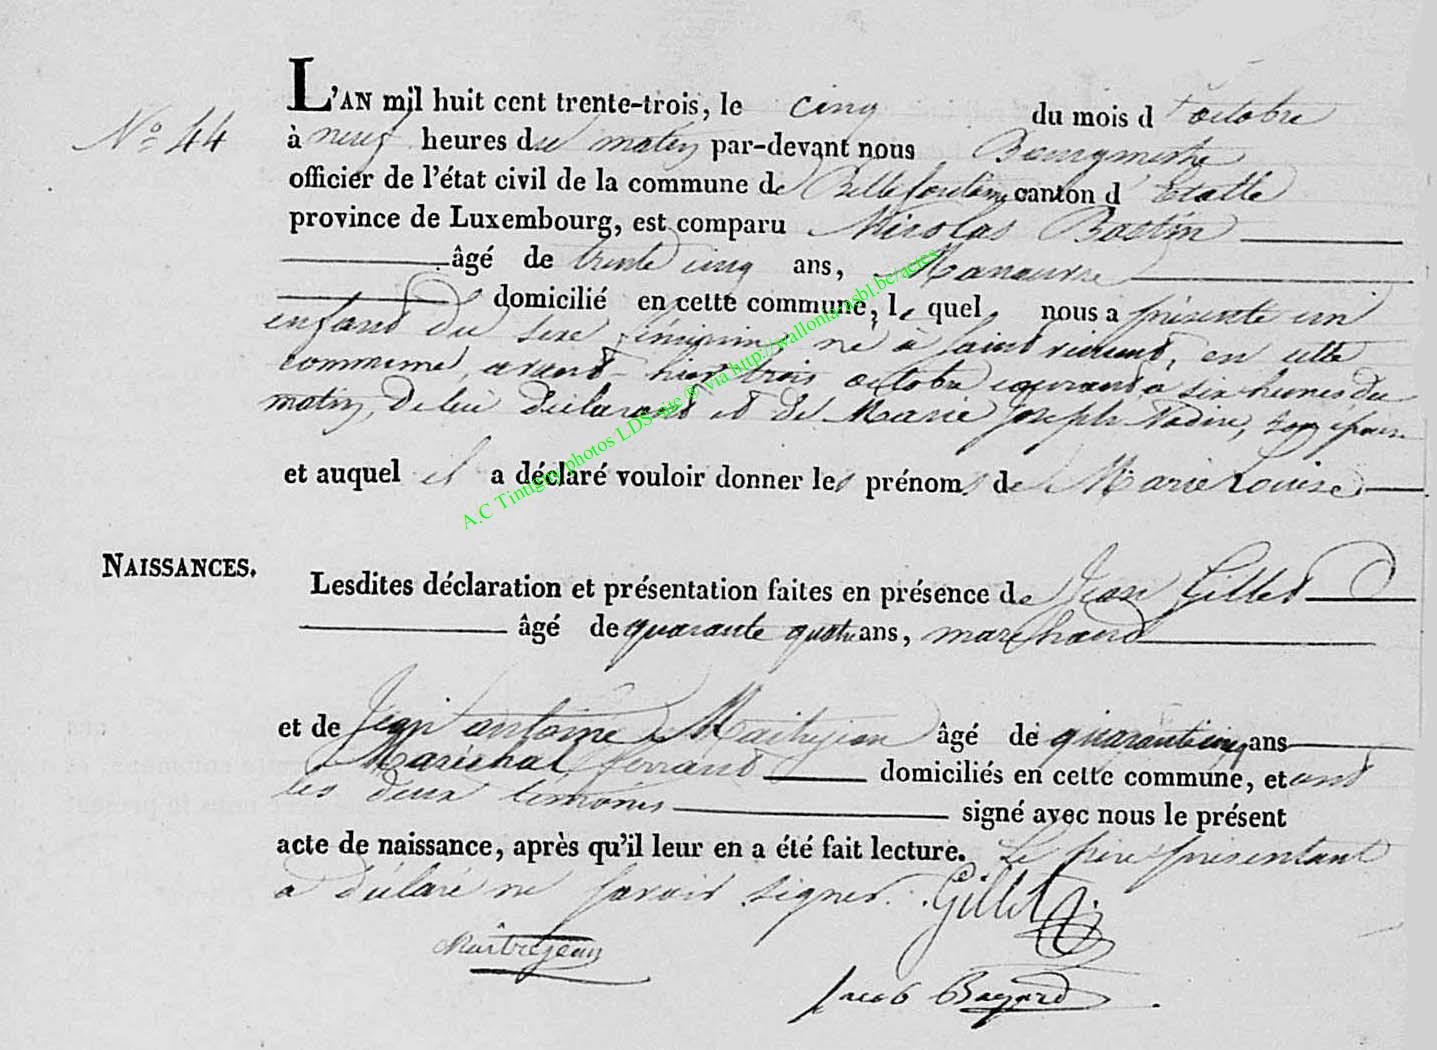 N° 44
L'AN mil huit cent trente-trois, le cinq du mois d'octobre
à neuf heures du matin par-devant nous Bourgmestre
officier de l'état civil de la commune de Bellefontaine canton d'Etalle
province de Luxembourg, est comparu Nicolas Bastin
âgé de trente cinq ans, Manœuvre
domicilié en cette commune, lequel nous a présenté un
enfant du sexe féminin, né à Saint vincent, en cette
commune, avant-hier trois octobre courant à six heures du
matin, de lui déclarant et de Marie Joseph Nadin, son épouse
et auquel il a déclaré vouloir donner les prénoms de Marie Louise
NAISSANCES.
Lesdites déclaration et présentation faites en présence de Jean Gillet
âgé de quarante quatre ans, marchand
et de Jean antoine Maitrejean âgé de quarante cinq ans
Maréchal ferrand domiciliés en cette commune, et ont
les deux temoins signé avec nous le présent
acte de naissance, après qu'il leur en a été fait lecture. Le père présentant
a déclaré ne savoir signer. Gillet
Maîtrejean
Jacob Bayard
A.C Tintigny photos LDS site ® via http://wallonia-asbl.be/actes